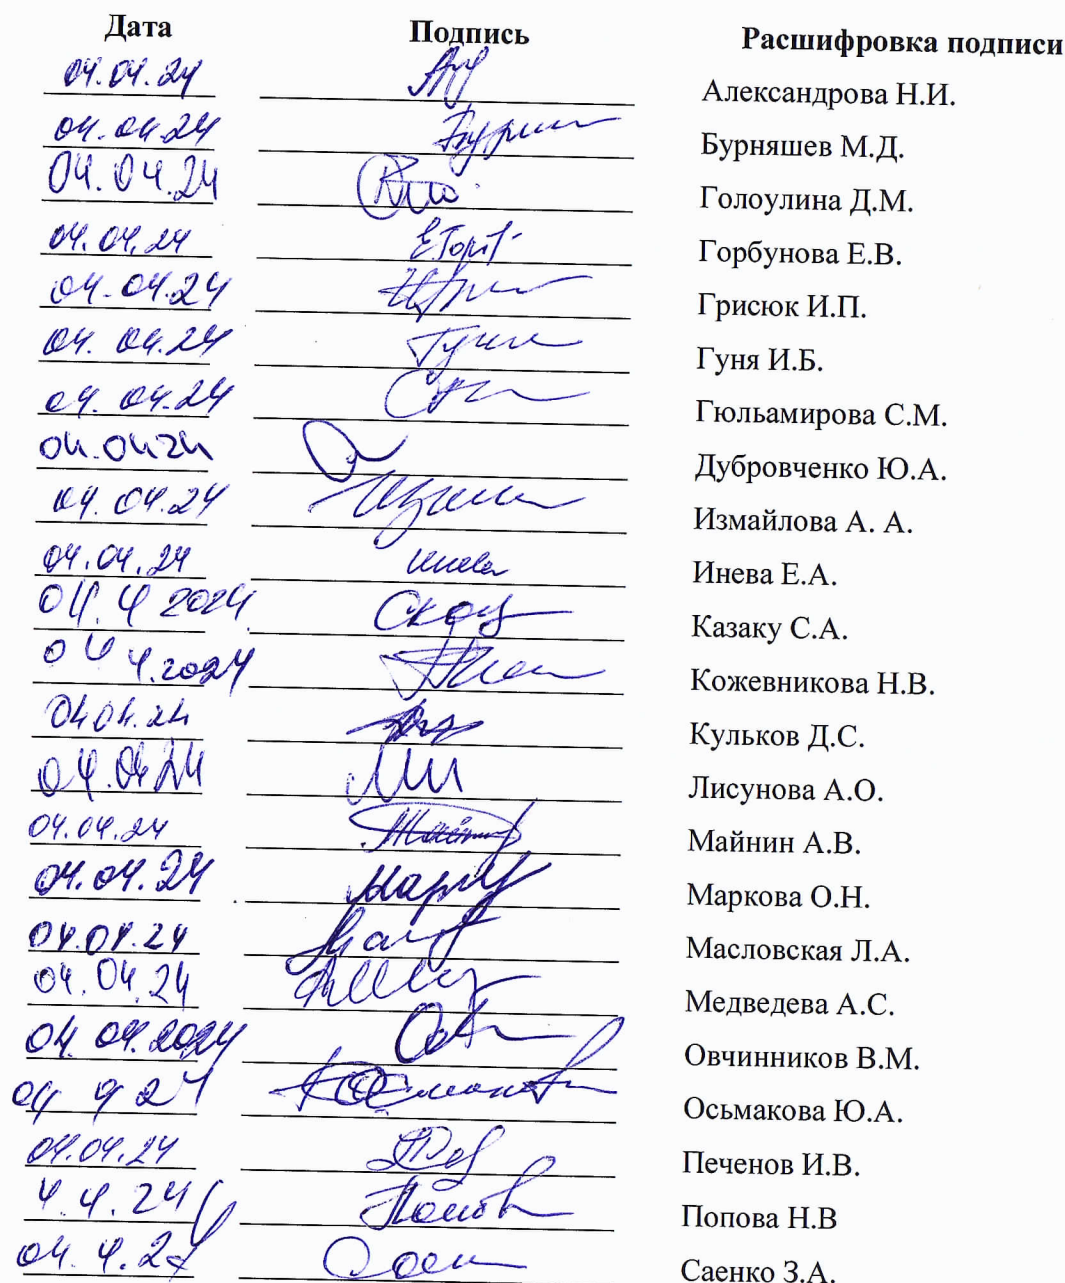 Дата Подпись Расшифровка подписи
04.04.24 Александрова Н.И.
04.04.24 Бурняшев М.Д.
04.04.24 Голоулина Д.М.
04.04.24 Горбунова Е.В.
04.04.24 Грисюк И.П.
04.04.24 Гуня И.Б.
04.04.24 Гюльамирова С.М.
04.04.24 Дубровченко Ю.А.
04.04.24 Измайлова А. А.
04.04.24 Инева Е.А.
04.4 2024. Казаку С.А.
04 4.2024 Кожевникова Н.В.
04.04.24 Кульков Д.С.
04.04.24 Лисунова А.О.
04.04.24 Майнин А.В.
04.04.24 Маркова О.Н.
04.04.24 Масловская Л.А.
04.04.24 Медведева А.С.
04.04.2024 Овчинников В.М.
04 4 24 Осьмакова Ю.А.
04.04.24 Печенов И.В.
4.4.24 Попова Н.В
04.4.24 Саенко З.А.